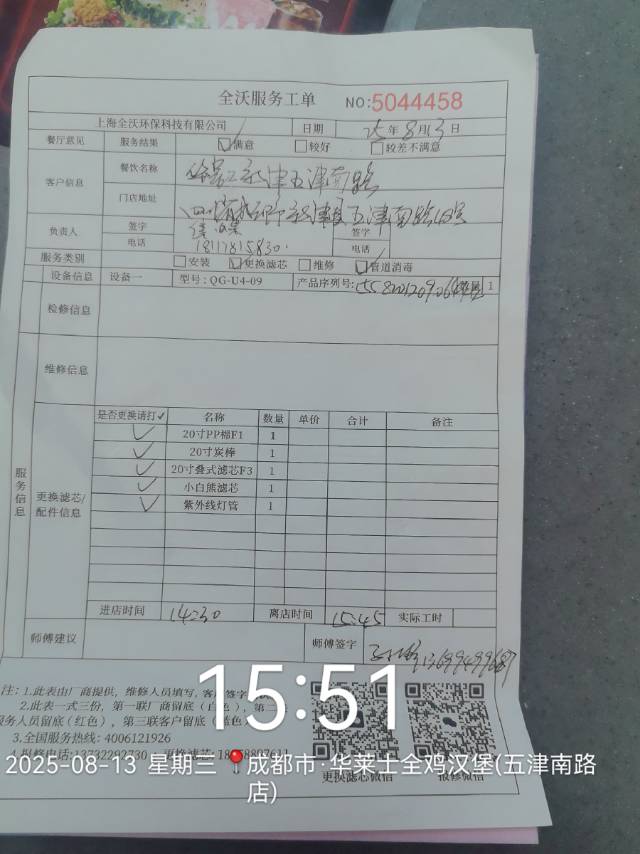 全沃服务工单 NO:5044458
上海全沃环保科技有限公司 日期 25年8月13日
餐厅意见 服务结果 ☑满意 □较好 □较差不满意
客户信息 餐饮名称 新津五津南路
门店地址 新津县五津南路
负责人 签字 签字
电话 18117815830 电话
服务类别 □安装 ☑更换滤芯 □维修 ☑管道消毒
设备信息 设备一 型号: QG-U4-09 产品序列号: 数量 1
检修信息
维修信息
服务信息
更换滤芯/配件信息
是否更换请打✓ 名称 数量 单价 合计 备注
✓ 20寸PP棉F1 1
✓ 20寸炭棒 1
✓ 20寸叠式滤芯F3 1
✓ 小白熊滤芯 1
✓ 紫外线灯管 1
进店时间 14:30 离店时间 15:45 实际工时
师傅建议 师傅签字 13699499687
注: 1.此表由厂商提供, 维修人员填写, 客户签字
2.此表一式三份, 第一联厂商留底(白色), 第二
服务人员留底(红色), 第三联客户留底(蓝色
3.全国服务热线: 4006121926
4.报修电话:13732292730 更换滤芯:
更换滤芯微信 报修微信
15:51
2025-08-13 星期三 成都市·华莱士全鸡汉堡(五津南路
店)